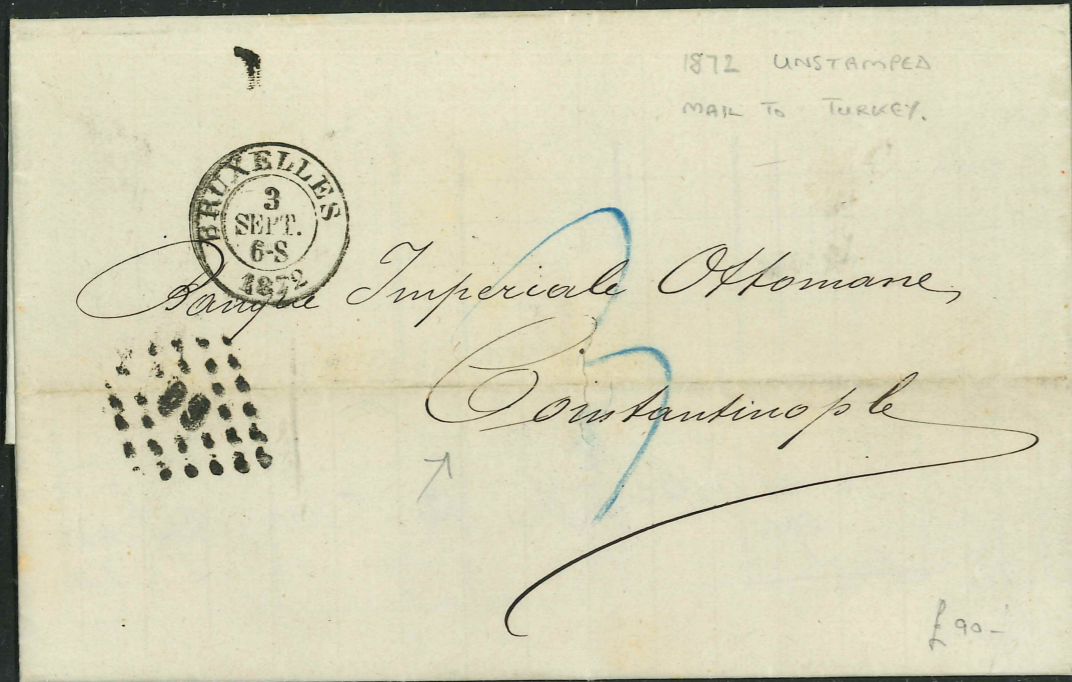 1872 UNSTAMPED
MAIL TO TURKEY.
BRUXELLES
3
SEPT.
6-S
1872
Banque Imperiale Ottomane,
Constantinople
3
£90-